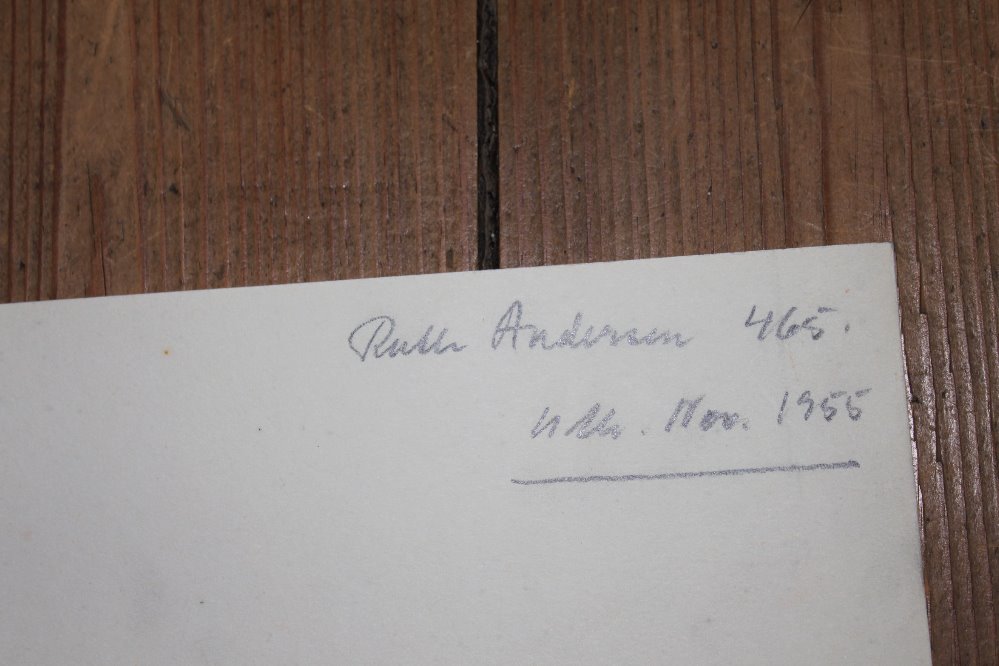 Ruth Andersen 465.
Nov. 1955